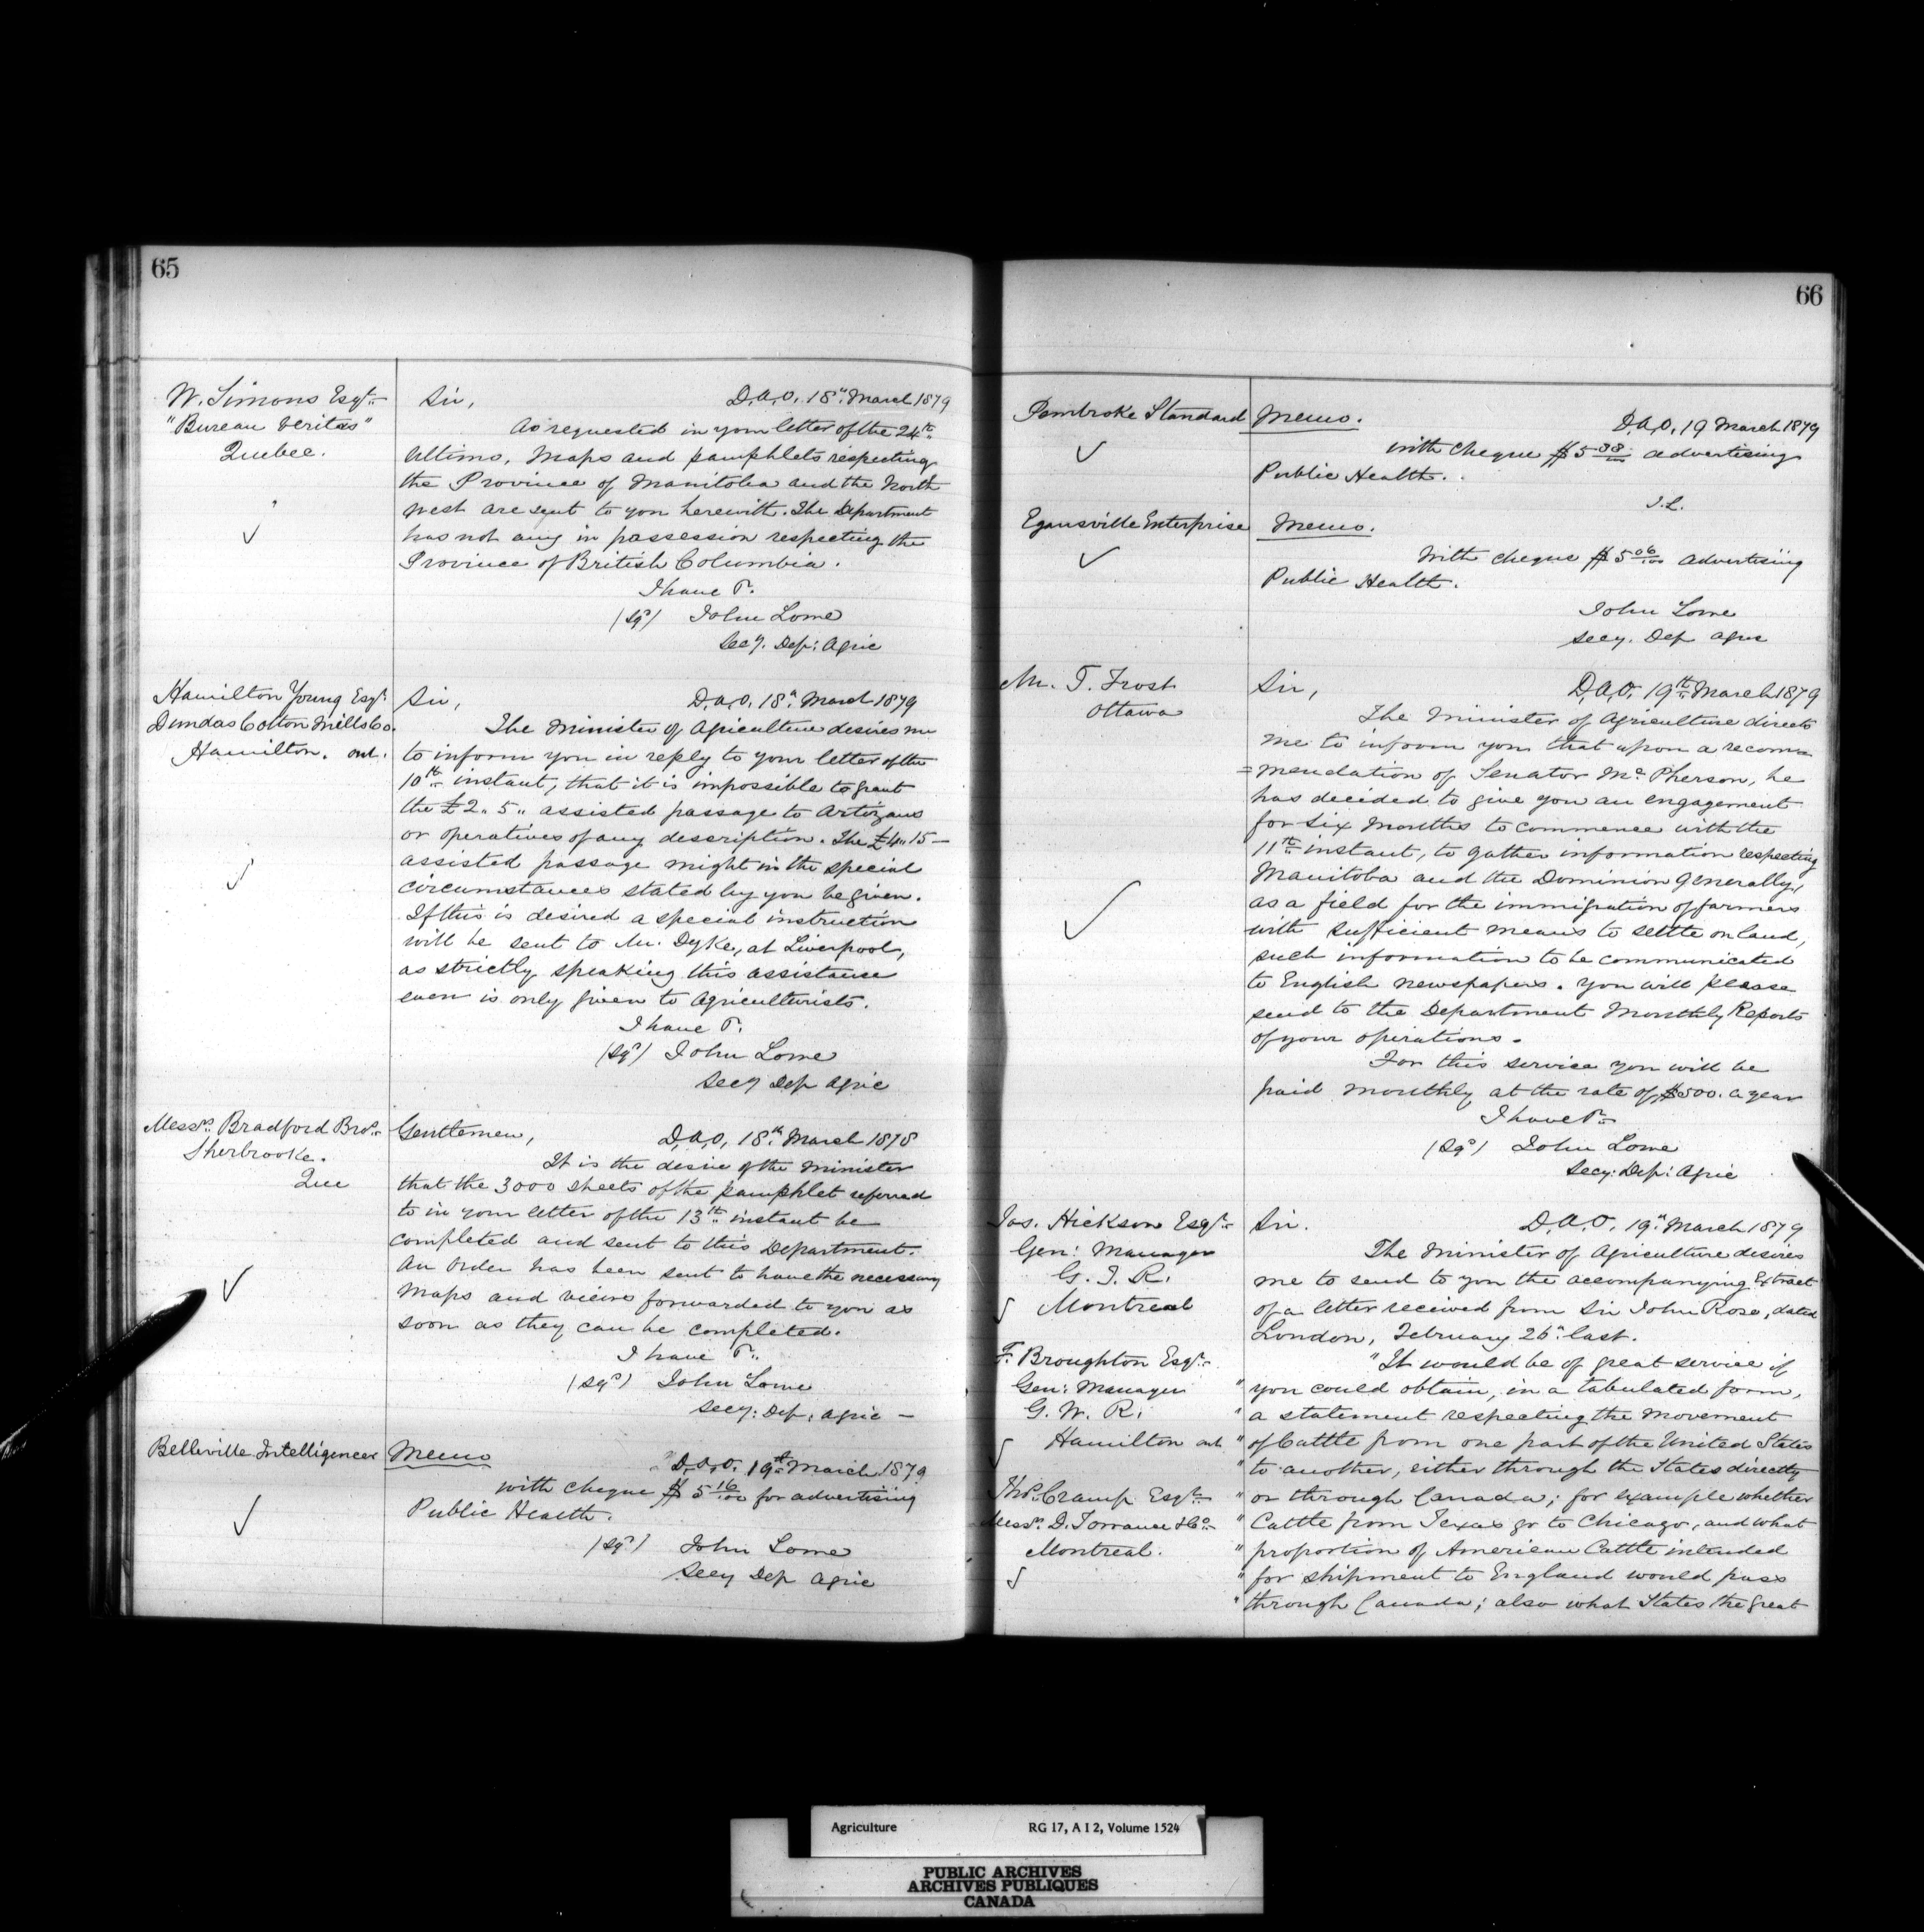 65
W. Simons Esqr.
"Bureau Veritas"
Quebec.
Sir,
D.A.O. 18th March 1879
As requested in your letter of the 24th
Ultimo, Maps and pamphlets respecting
the Province of Manitoba and the North
West are sent to you herewith. The Department
has not any in possession respecting the
Province of British Columbia.
I have &.
(Sgd) John Lowe
Secy. Dep: Agric
Hamilton Young Esqr
Dundas Cotton Mills Co.
Hamilton. Ont.
Sir,
D.A.O. 18th March 1879
The Minister of Agriculture desires me
to inform you in reply to your letter of the
10th instant, that it is impossible to grant
the £2. 5.. assisted passage to Artizans
or operatives of any description. The £4.. 15—
assisted passage might in the special
circumstances stated by you be given.
If this is desired a special instruction
will be sent to Mr. Dyke, at Liverpool,
as strictly speaking this assistance
even is only given to Agriculturists.
I have &.
(Sgd) John Lowe
Secy Dep Agric
Messrs. Bradford Bros.
Sherbrooke.
Que
Gentlemen,
D.A.O. 18th March 1878
It is the desire of the Minister
that the 3000 sheets of the pamphlet referred
to in your letter of the 13th instant be
completed and sent to this Department.
An Order has been sent to have the necessary
Maps and views forwarded to you as
soon as they can be completed.
I have &.
(Sgd) John Lowe
Secy: Dep: Agric —
Belleville Intelligencer
Memo
D.A.O. 19th March 1879
with cheque $5 16/100 for advertising
Public Health.
(Sgd) John Lowe
Secy Dep Agric
66
Pembroke Standard
Memo.
D.A.O. 19 March 1879
with cheque $5 38/100 advertising
Public Health.
J.L.
Egansville Enterprise
Memo.
With cheque $5 06/100 advertising
Public Health.
John Lowe
Secy. Dep Agric
Mr. T. Frost
Ottawa
Sir,
D.A.O. 19th March 1879
The Minister of Agriculture directs
me to inform you that upon a recom=
=mendation of Senator McPherson, he
has decided to give you an engagement
for Six Months to commence with the
11th instant, to gather information respecting
Manitoba and the Dominion generally,
as a field for the immigration of farmers
with sufficient means to settle on land,
such information to be communicated
to English newspapers. You will please
send to the Department Monthly Reports
of your operations.
For this service you will be
paid monthly at the rate of $500. a year
I have &.
(Sgd) John Lowe
Secy: Dep: Agric
Jas. Hickson Esqr.
Gen: Manager
G. T. R.
Montreal
F. Broughton Esqr.
Gen: Manager
G. W. R.
Hamilton Ont.
Thos. Cramp Esqr.
Messrs. D. Torrance & Co.
Montreal.
Sir.
D.A.O. 19th March 1879
The Minister of Agriculture desires
me to send to you the accompanying Extract
of a letter received from Sir John Rose, dated
London, February 26th last.
"It would be of great service if
" you could obtain, in a tabulated form,
" a statement respecting the movement
" of Cattle from one part of the United States
" to another, either through the States directly
" or through Canada; for example whether
" Cattle from Texas go to Chicago, and what
" proportion of American Cattle intended
" for shipment to England would pass
" through Canada; also what States the great
Agriculture RG 17, A I 2, Volume 1524
PUBLIC ARCHIVES
ARCHIVES PUBLIQUES
CANADA